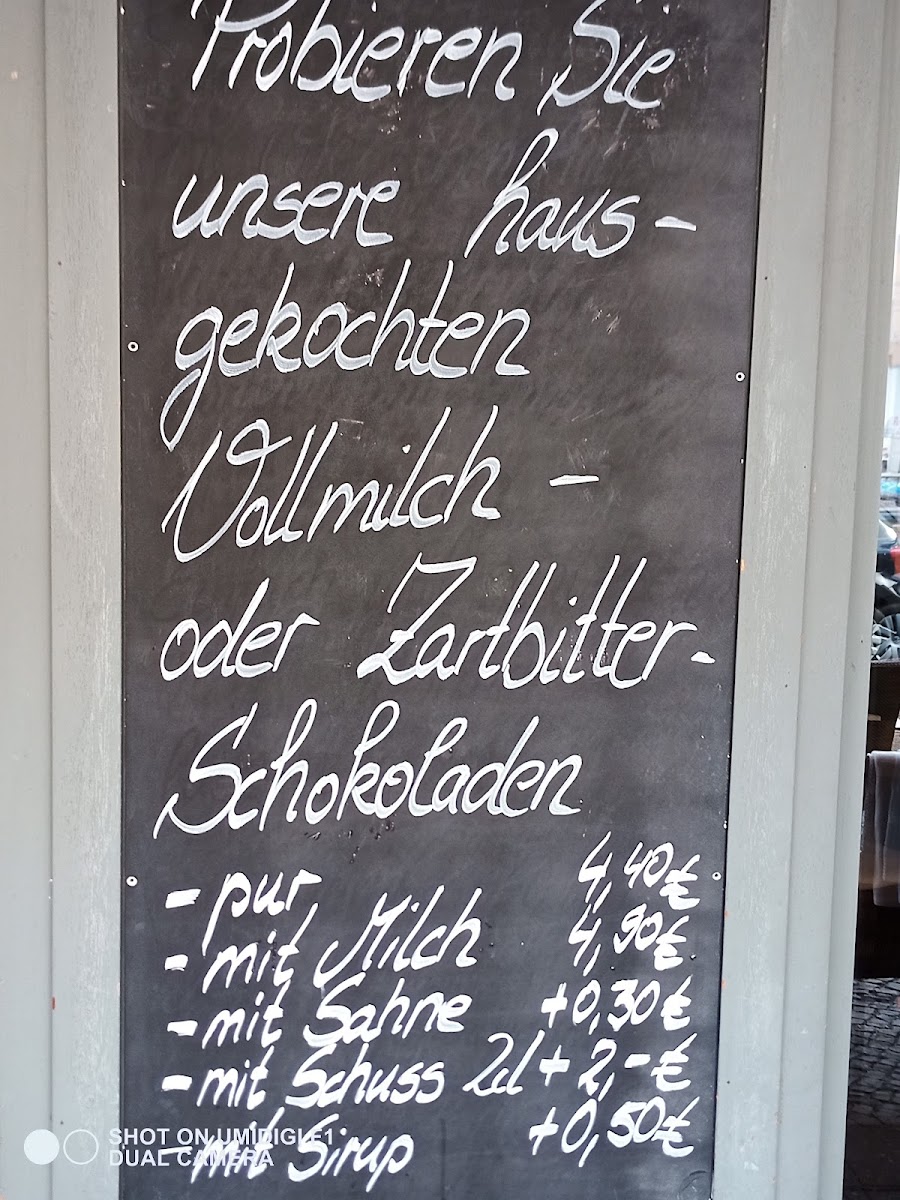 Probieren Sie
unsere haus-
gekochten
Vollmilch -
oder Zartbitter-
Schokoladen
- pur 4,40€
- mit Milch 4,90€
- mit Sahne +0,30€
- mit Schuss 2cl + 2,-€
- mit Sirup +0,50€
SHOT ON UMIDIGI F1
DUAL CAMERA